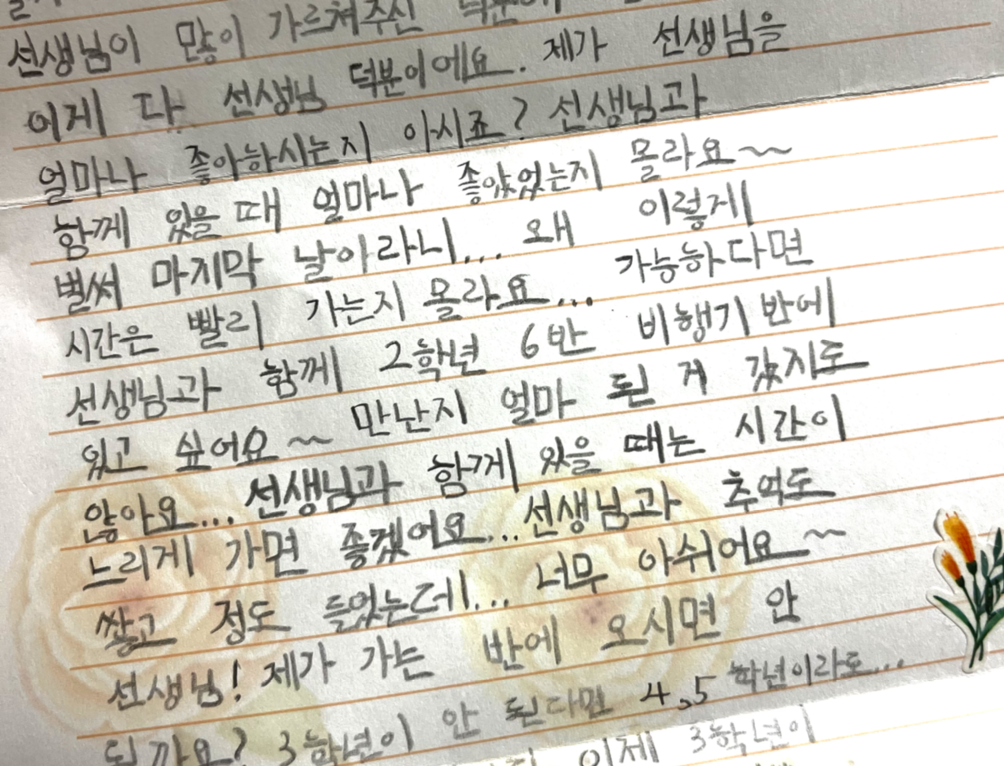 선생님이 많이 가르쳐주신 덕분에
이게 다 선생님 덕분이에요. 제가 선생님을
얼마나 좋아하시는지 아시죠? 선생님과
함께 있을 때 얼마나 좋았었는지 몰라요~
벌써 마지막 날이라니... 왜 이렇게
시간은 빨리 가는지 몰라요... 가능하다면
선생님과 함께 2학년 6반 비행기반에
있고 싶어요~ 만난지 얼마 된 게 갔지도
않아요... 선생님과 함께 있을 때는 시간이
느리게 가면 좋겠어요... 선생님과 추억도
쌓고 정도 들었는데... 너무 아쉬어요~
선생님! 제가 가는 반에 오시면 안
되까요? 3학년이 안 된다면 4,5학년이라도...
이제 3학년이